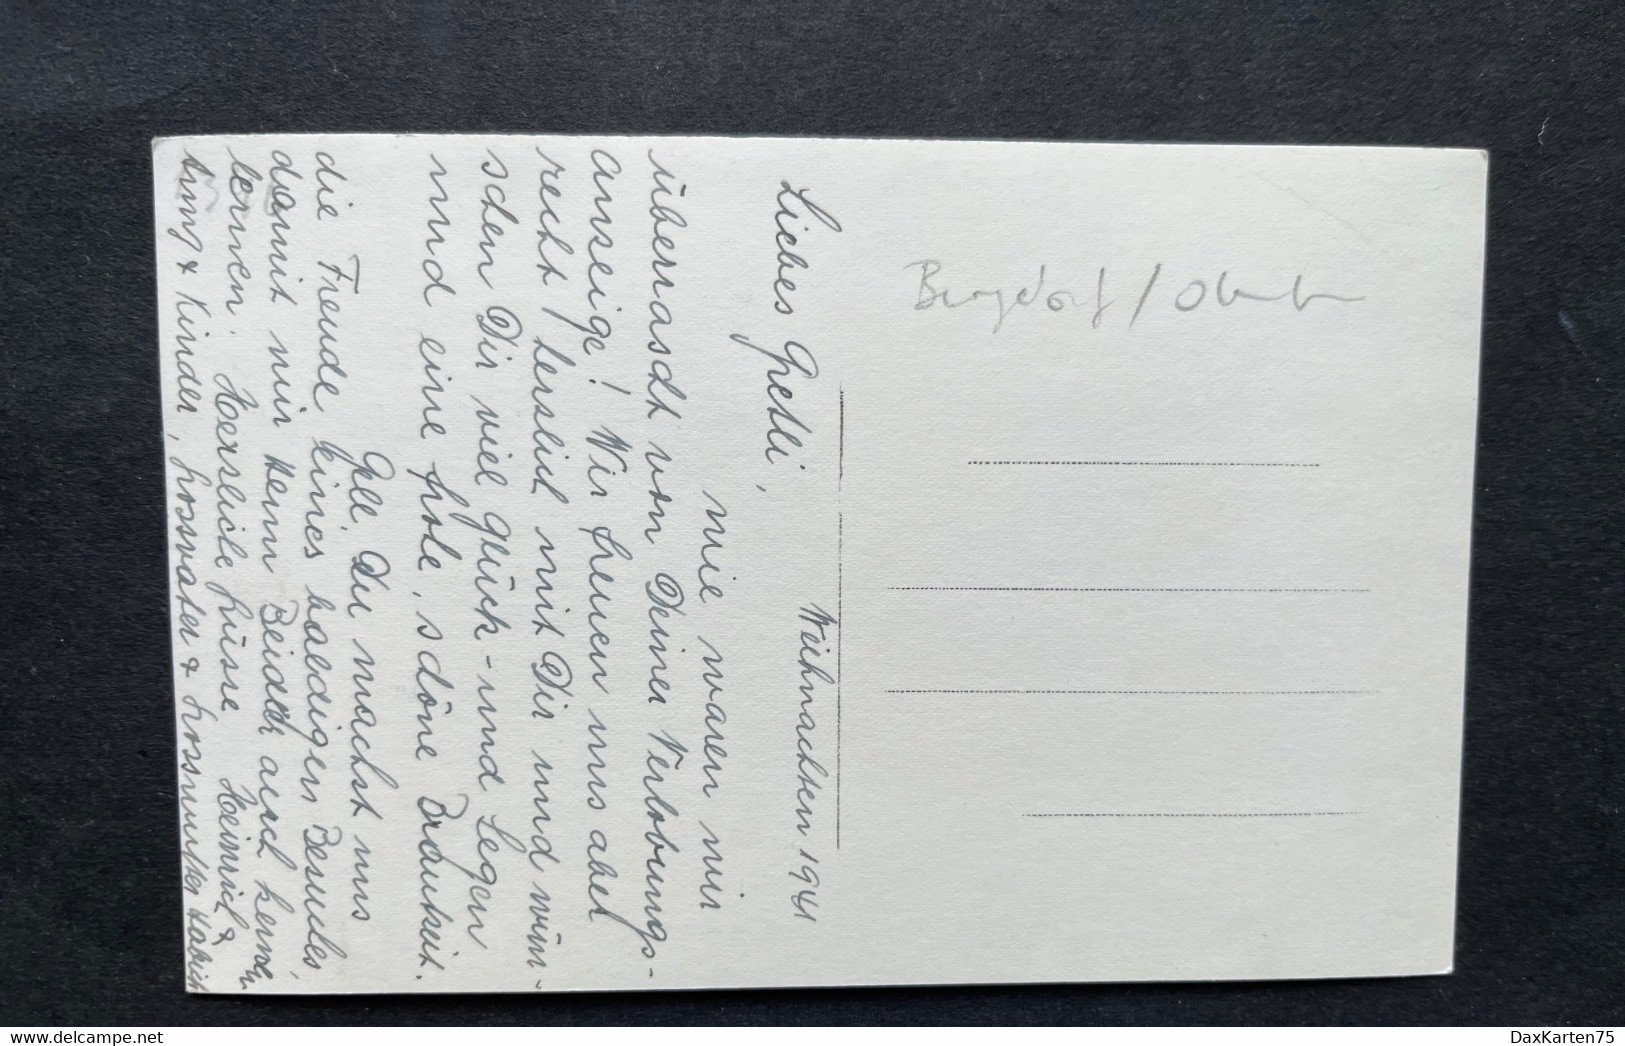 Weihnachten 1941
Liebes Gretli,
wie waren wir
überrascht von Deiner Verlobungs-
anzeige! Wir freuen uns aber
recht herzlich mit Dir und wün-
schen Dir viel Glück- und Segen
und eine frohe, schöne Brautzeit.
Gell Du machst uns
die Freude eines baldigen Besuches,
damit wir Herrn Beidler auch kennen
lernen. Herzliche Grüsse Heinrich &
& Kinder, Grossvater & Grossmutter
Burgdorf /
DaxKarten75